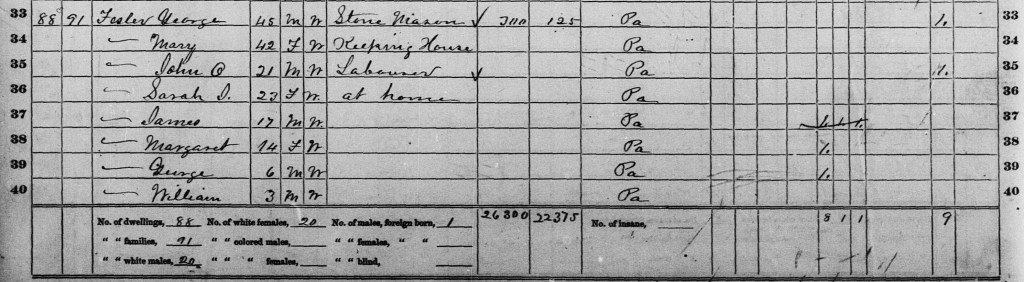 33 88 91 Fesler George 45 M W Stone Mason ✓ 300 125 Pa 1. 33
34 — Mary 42 F W Keeping House Pa 34
35 — John O 21 M W Labourer ✓ Pa 1. 35
36 — Sarah D. 23 F W. at home Pa 36
37 — James 17 M W Pa 37
38 — Margaret 14 F W Pa 1. 38
39 — George 6 M W Pa 1. 39
40 — William 3 M W Pa 40
No. of dwellings, 88 No. of white females, 20 No. of males, foreign born, 1 26300 22375 No. of insane, 8 1 1 9
" " families, 91 " " colored males, " " females, " "
" " white males, 20 " " " females, " " blind,